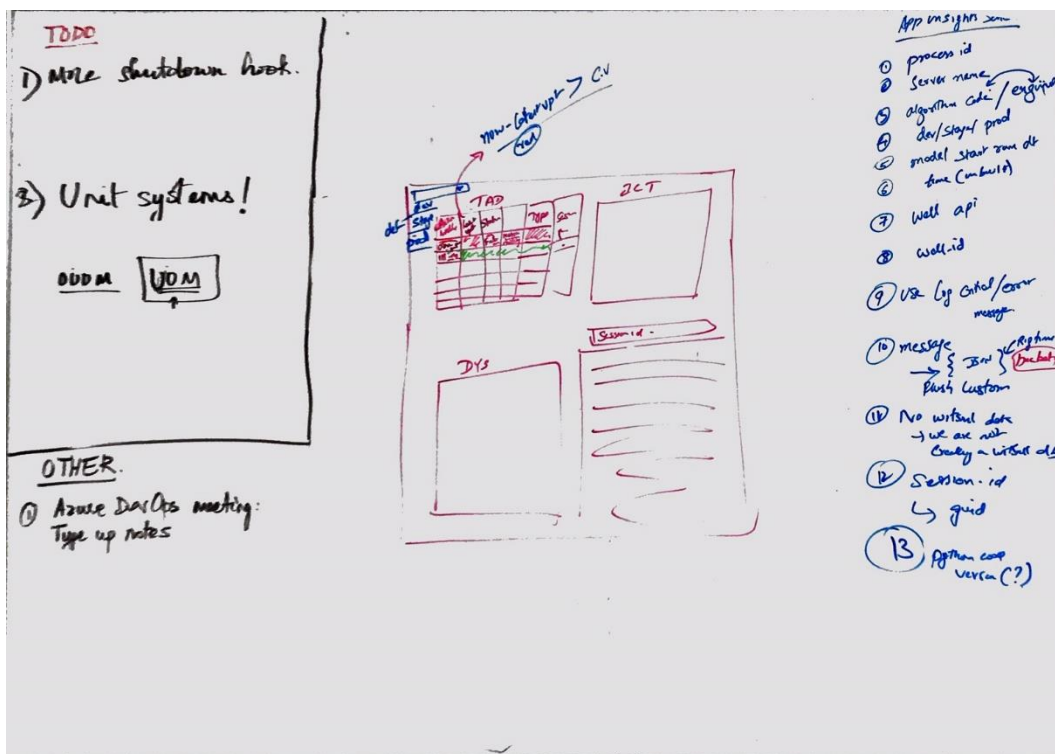 TODO
1) More shutdown hook.
2) Unit systems!
OUOM UOM
OTHER.
① Azure DevOps meeting:
Type up notes
> C.V
dev
stage
prod
TAD
Type
BCT
DYS
Session id.
App insights
① process id
② Server name
③ algorithm code / engine
④ dev/stage/prod
⑤ model start run dt
⑥ time
⑦ well api
⑧ well-id
⑨ use log critical/error
message.
⑩ message
→ { }
Custom
⑪ No witsml data
→ we are not
Creating a witsml
⑫ Session-id
↳ guid
13 Python
version (?)